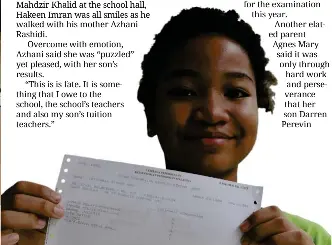 Mahdzir Khalid at the school hall,
Hakeem Imran was all smiles as he
walked with his mother Azhani
Rashidi.
Overcome with emotion,
Azhani said she was "puzzled"
yet pleased, with her son's
results.
"This is is fate. It is some-
thing that I owe to the
school, the school's teachers
and also my son's tuition
teachers."
for the examination
this year.
Another elat-
ed parent
Agnes Mary
said it was
only through
hard work
and perse-
verance
that her
son Darren
Perevin